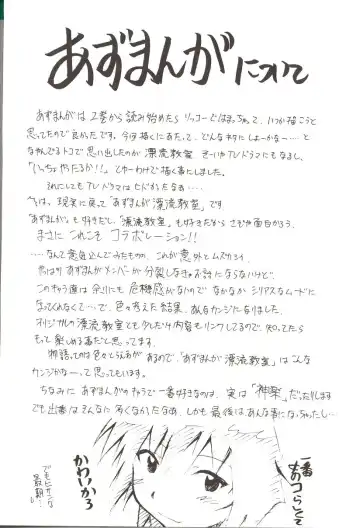 あずまんがについて
あずまんがは2巻から読み始めたらソッコーではまっちゃって、いつか描こうと
思ってたので良かったです。今回描くにあたって、どんなネタにしよーかなー…と
なやんでるトコで思い出したのが漂流教室。そーいやTVドラマにもなるし、
「いっちょやったるか!!」とゆーわけで描く事にしました。
それにしてもTVドラマはヒドかったなぁ……
では、現実に戻って「あずまんが漂流教室」です
「あずまんが」も好きだし、「漂流教室」も好きだからさぞや面白かろう、
まさにこれこそコラボレーション!!
……なんて意気込んでみたものの、これが意外とムズカシイ、
やはりあずまんがメンバーが分裂しなきゃお話にならないけど、
このキャラ達は余りにも危機感がなのでなかなかシリアスなムードに
なってくれなくて…で、色々考えた結果、あんなカンジになりました。
オリジナルの漂流教室とも少しだけ内容もリンクしてるので、知ってたら
もって楽しめる事だと思ってます。
物語ってのは色々とらえるがあるので、「あずまんが漂流教室」はこんな
カンジかなーって思ってもらっています。
ちなみにあずまんがのキャラで一番好きなのは、実は「神楽」だったりします
でも出番はそんなに多くなかったなぁ、しかも最後はあんな事になっちゃったし…
かわいかろ
でもヒサンな最期…
一番